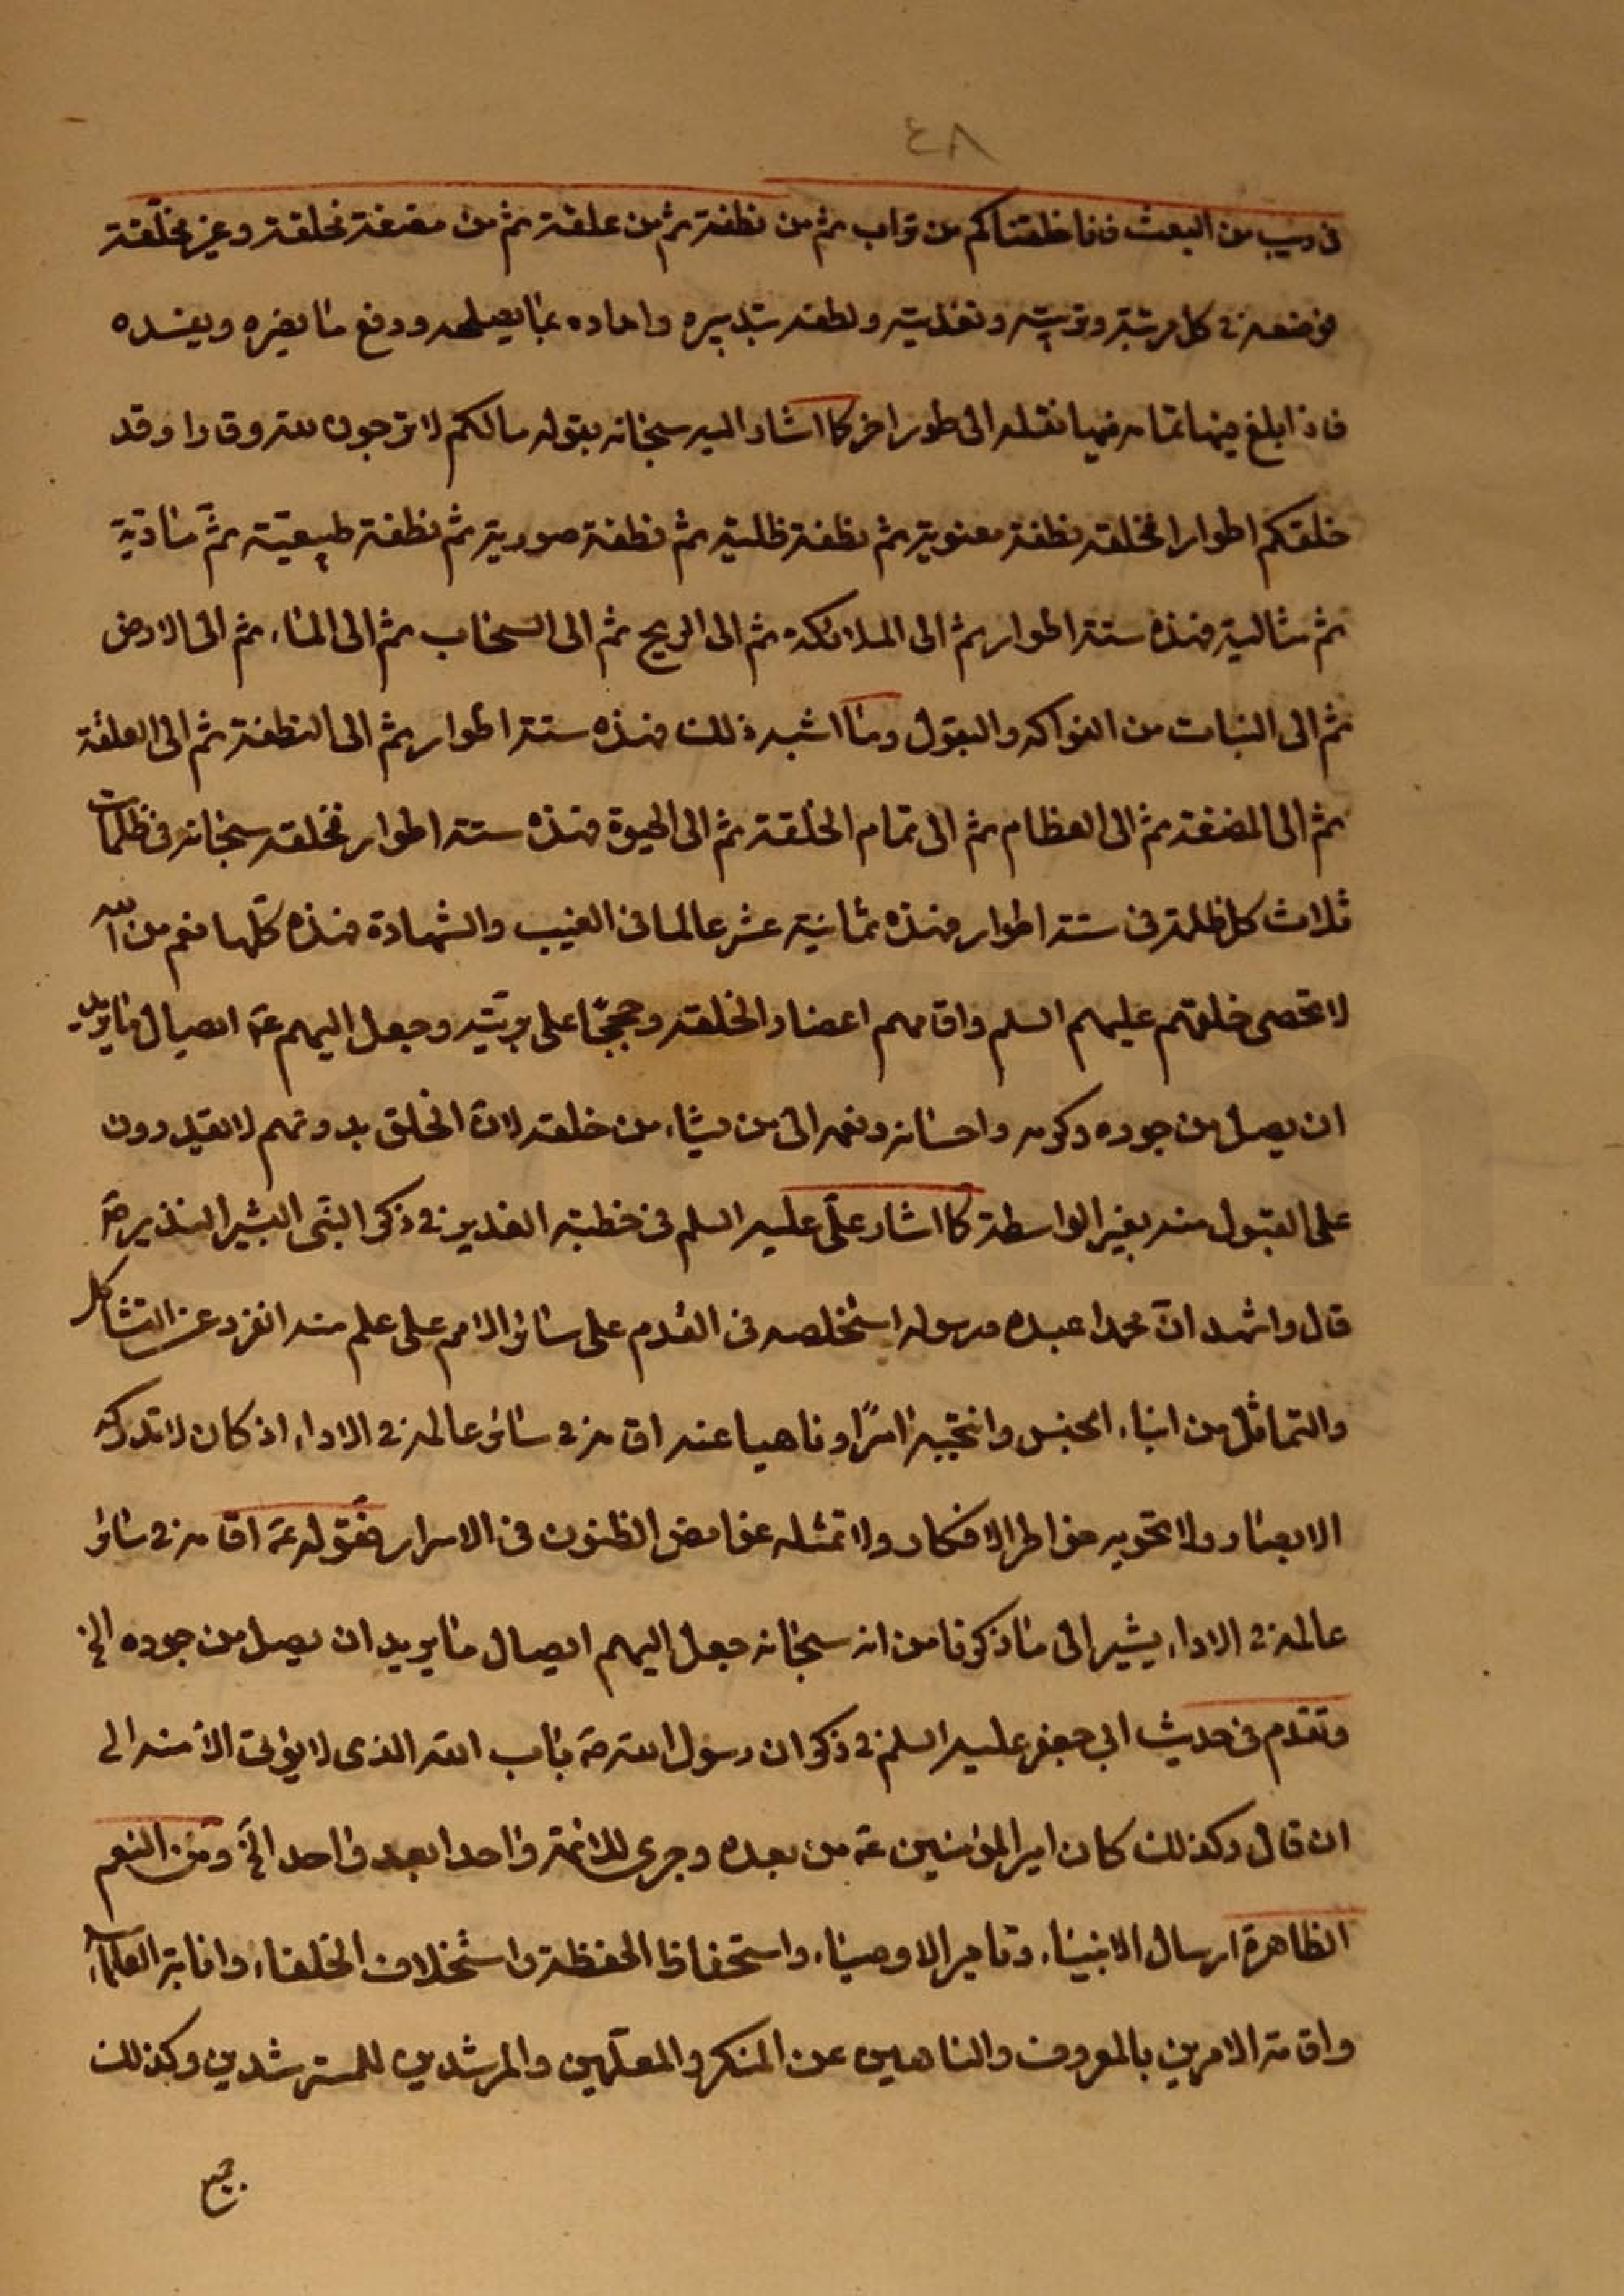 ٤٨
فى ريب من البعث فانا خلقناكم من تراب ثم من نطفة ثم من علقة ثم من مضغة مخلقة وغير مخلقة
فوضعه فى كل رتبة وتربيته وتغذيته ولطفه بتدبيره وامداده بما يصلحه ودفع ما يضره ويفسده
فاذا بلغ منها تمامه فيها نقله الى طور اخر كما اشار اليه سبحانه بقوله مالكم لا ترجون لله وقارا وقد
خلقكم اطوارا فخلقه نطفة معنوية ثم نطفة ظلية ثم نطفة صورية ثم نطفة طبيعية ثم مادية
ثم مثالية فهذه ستة اطوار ثم الى الملائكة ثم الى الريح ثم الى السحاب ثم الى الماء ثم الى الارض
ثم الى النبات من الفواكه والبقول وما اشبه ذلك فهذه ستة اطوار ثم الى النطفة ثم الى العلقة
ثم الى المضغة ثم الى العظام ثم الى تمام الخلقة ثم الى الحيوة فهذه ستة اطوار فخلقه سبحانه فى ظلمات
ثلاث كل ظلمة فى ستة اطوار فهذه ثمانية عشر عالما فى الغيب والشهادة فهذه كلها نعم من الله
لا تحصى خلقهم عليهم السلم واقامهم اعضادا لخلقه وحججا على بريته وجعل اليهم عم ايصال ما يريد
ان يصل من جوده وكرمه واحسانه ونعمه الى من يشاء من خلقه لان الخلق بدونهم لا يقدرون
على القبول منه بغير الواسطة كما اشار على عليه السلم فى خطبته الغدير فى ذكر النبى البشير النذير ص
قال واشهد ان محمدا عبده ورسوله استخلصه فى القدم على سائر الامم على علم منه انفرد عن التشاكل
والتماثل من ابناء الجنس وانتجبه امرا وناهيا عنه اقامه فى سائر عالمه فى الاداء اذ كان لا تدركه
الابصار ولا تحويه خواطر الافكار ولا تمثله غوامض الظنون فى الاسرار فقوله عم اقامه فى سائر
عالمه فى الاداء يشير الى ما ذكرنا من انه سبحانه جعل اليهم ايصال ما يريد ان يصل من جوده الخ
وتقدم فى حديث ابى جعفر عليه السلم فى ذكر ان رسول الله ص باب الله الذى لا يؤتى الا منه الى
ان قال وكذلك كان امير المؤمنين عم من بعده وجرى للائمة واحدا بعد واحد الخ ومن النعم
الظاهرة ارسال الانبياء وتامير الاوصياء واستحفاظ الحفظة واستخلاف الخلفاء وانابة العلماء
واقامة الامرين بالمعروف والناهين عن المنكر والمعلمين والمرشدين للمسترشدين وكذلك